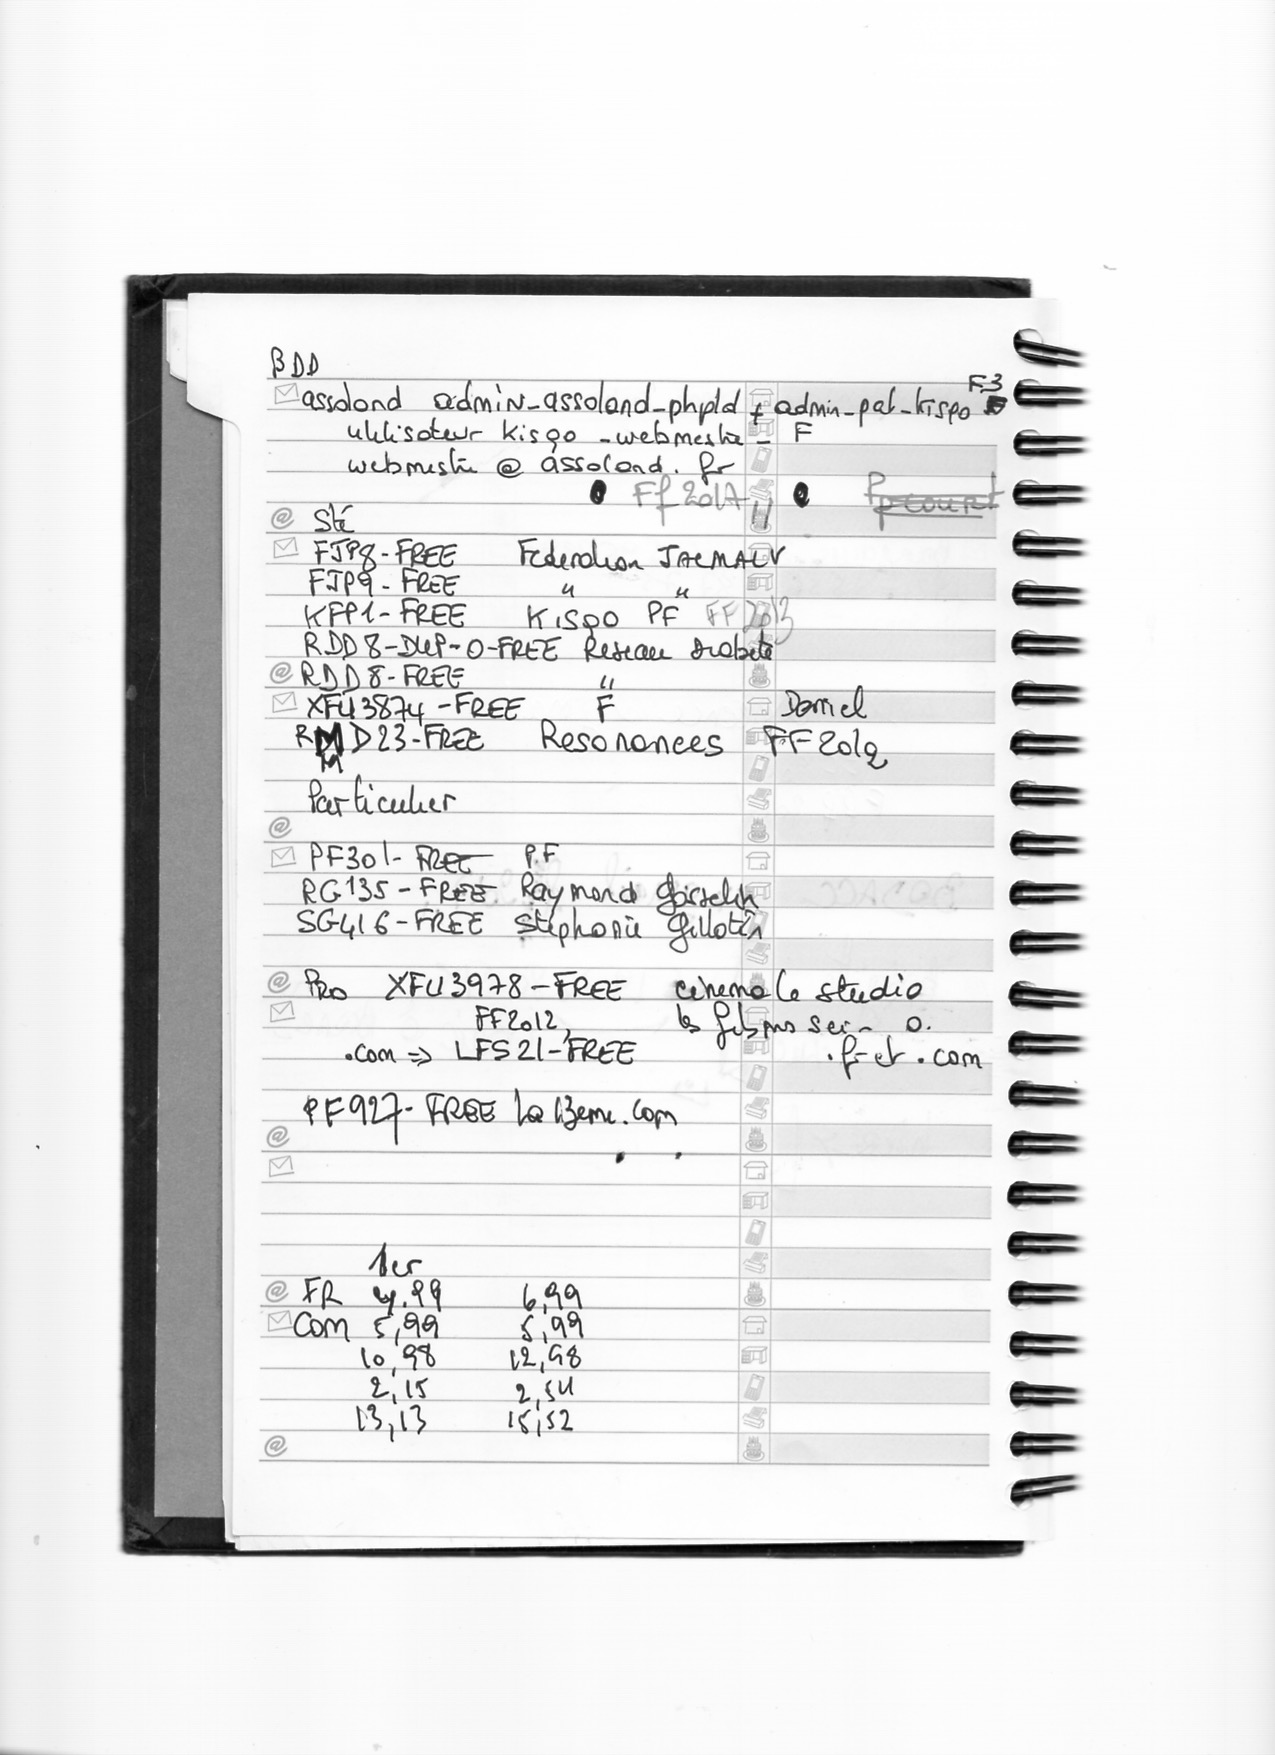 BDD
F.3
assoland admin_assoland_phpld + admin_pat_kispo
utilisateur Kisqo _webmestre _ F
webmestre @ assoland.fr
FF2017
Sté
FJP8-FREE Federation JALMALV
FJP9-FREE " "
KFP1-FREE Kisqo PF FF2013
RDD8-DUP-0-FREE Reseau Diabete
RDD8-FREE "
XFU3874-FREE F Daniel
D23-FREE Resonances FF2012
M
Particulier
PF301-FREE P.F
RG135-FREE Raymond Gosselin
SG416-FREE Stéphanie Gillotin
PRO XFU3978-FREE cinema le studio
FF2012,
.com => LFS21-FREE .fr et .com
PF927-FREE .com
1er
FR 4.99 6,99
COM 5,99 5,99
10,98 12,98
2,15 2,54
13,13 15,52